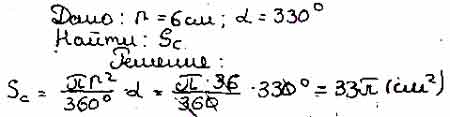 Дано: r = 6 см; α = 330°
Найти: Sc
Решение:
Sc = πr²/360° · α = π·36/360 · 330° = 33π (см²)